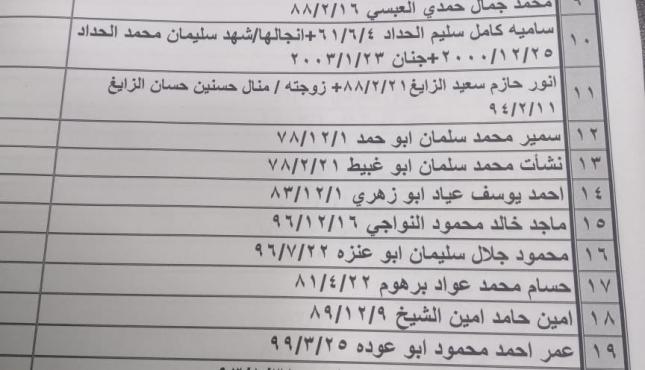 ٩ محمد جمال حمدي العبسي ٨٨/٢/١٦
١٠ ساميه كامل سليم الحداد ٦١/٦/٤+انجالها/شهد سليمان محمد الحداد
٢٠٠٠/١٢/٢٥+جنان ٢٠٠٣/١/٢٣
١١ انور حازم سعيد الزايغ٨٨/٢/٢١+ زوجته / منال حسنين حسان الزايغ
٩٤/٢/١١
١٢ سمير محمد سلمان ابو حمد ٧٨/١٢/١
١٣ نشأت محمد سلمان ابو غبيط ٧٨/٢/٢١
١٤ احمد يوسف عياد ابو زهري ٨٣/١٢/١
١٥ ماجد خالد محمود النواجي ٩٦/١٢/١٦
١٦ محمود جلال سليمان ابو عنزه ٩٦/٧/٢٢
١٧ حسام محمد عواد برهوم ٨١/٤/٢٢
١٨ امين حامد امين الشيخ ٨٩/١٢/٩
١٩ عمر احمد محمود ابو عوده ٩٩/٣/٢٥